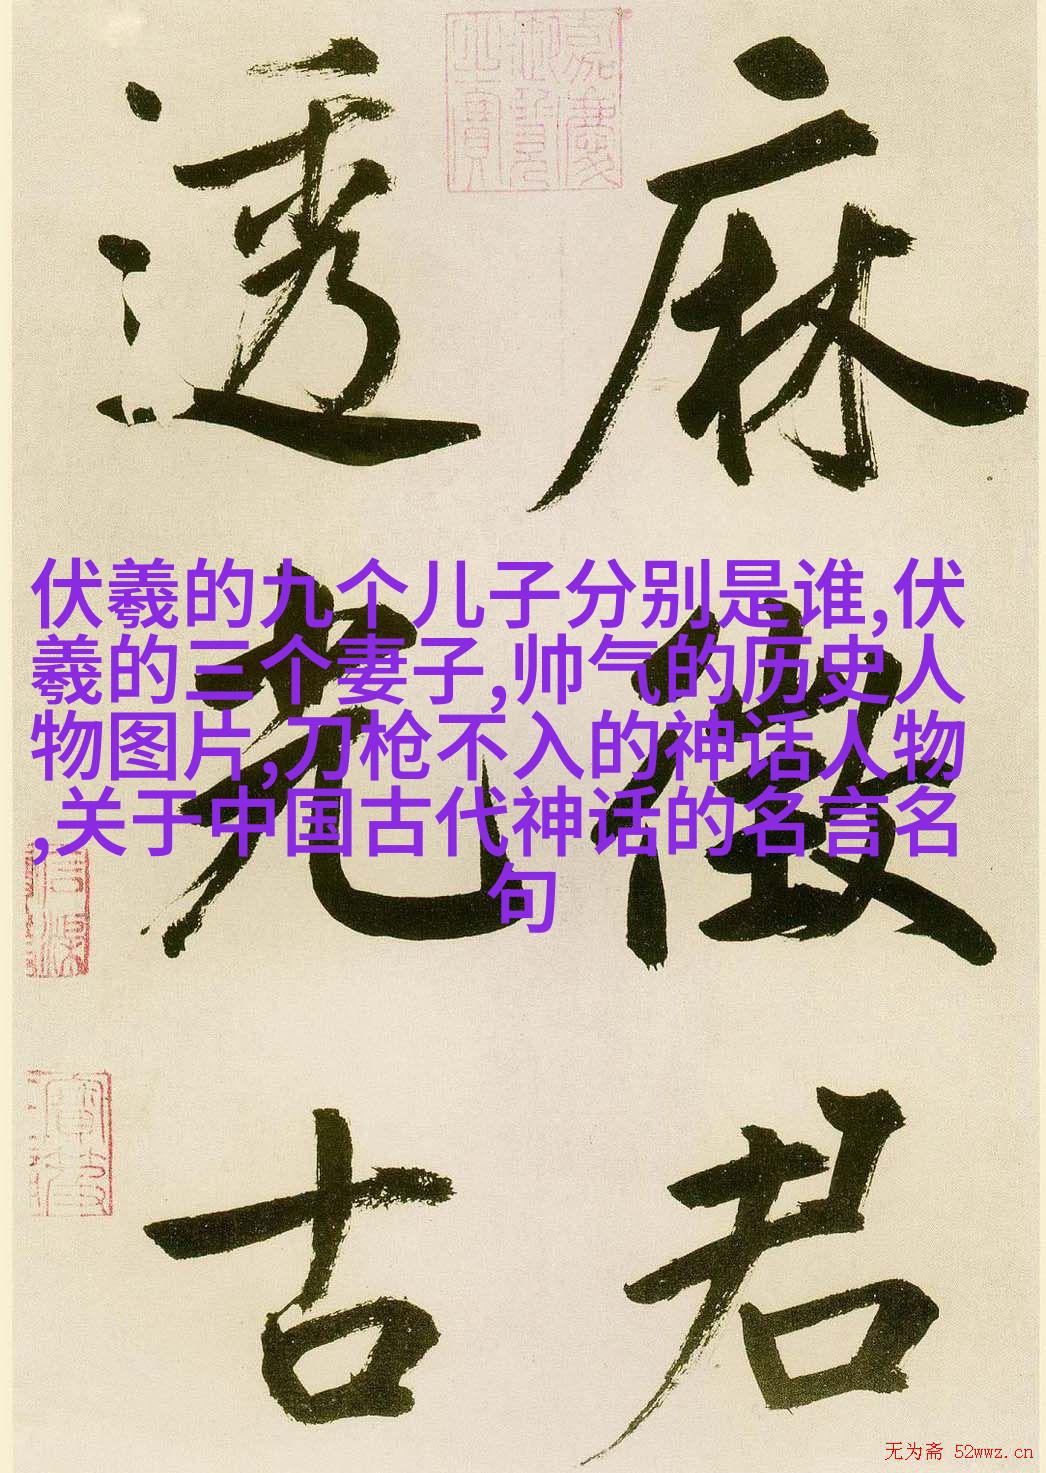 麻
徵
君
透
光
古
伏羲的九个儿子分别是谁,伏
羲的三个妻子,帅气的历史人
物图片,刀枪不入的神话人物
,关于中国古代神话的名言名
句
嘉慶
御覽
之寶
无为斋 52wwz.cn